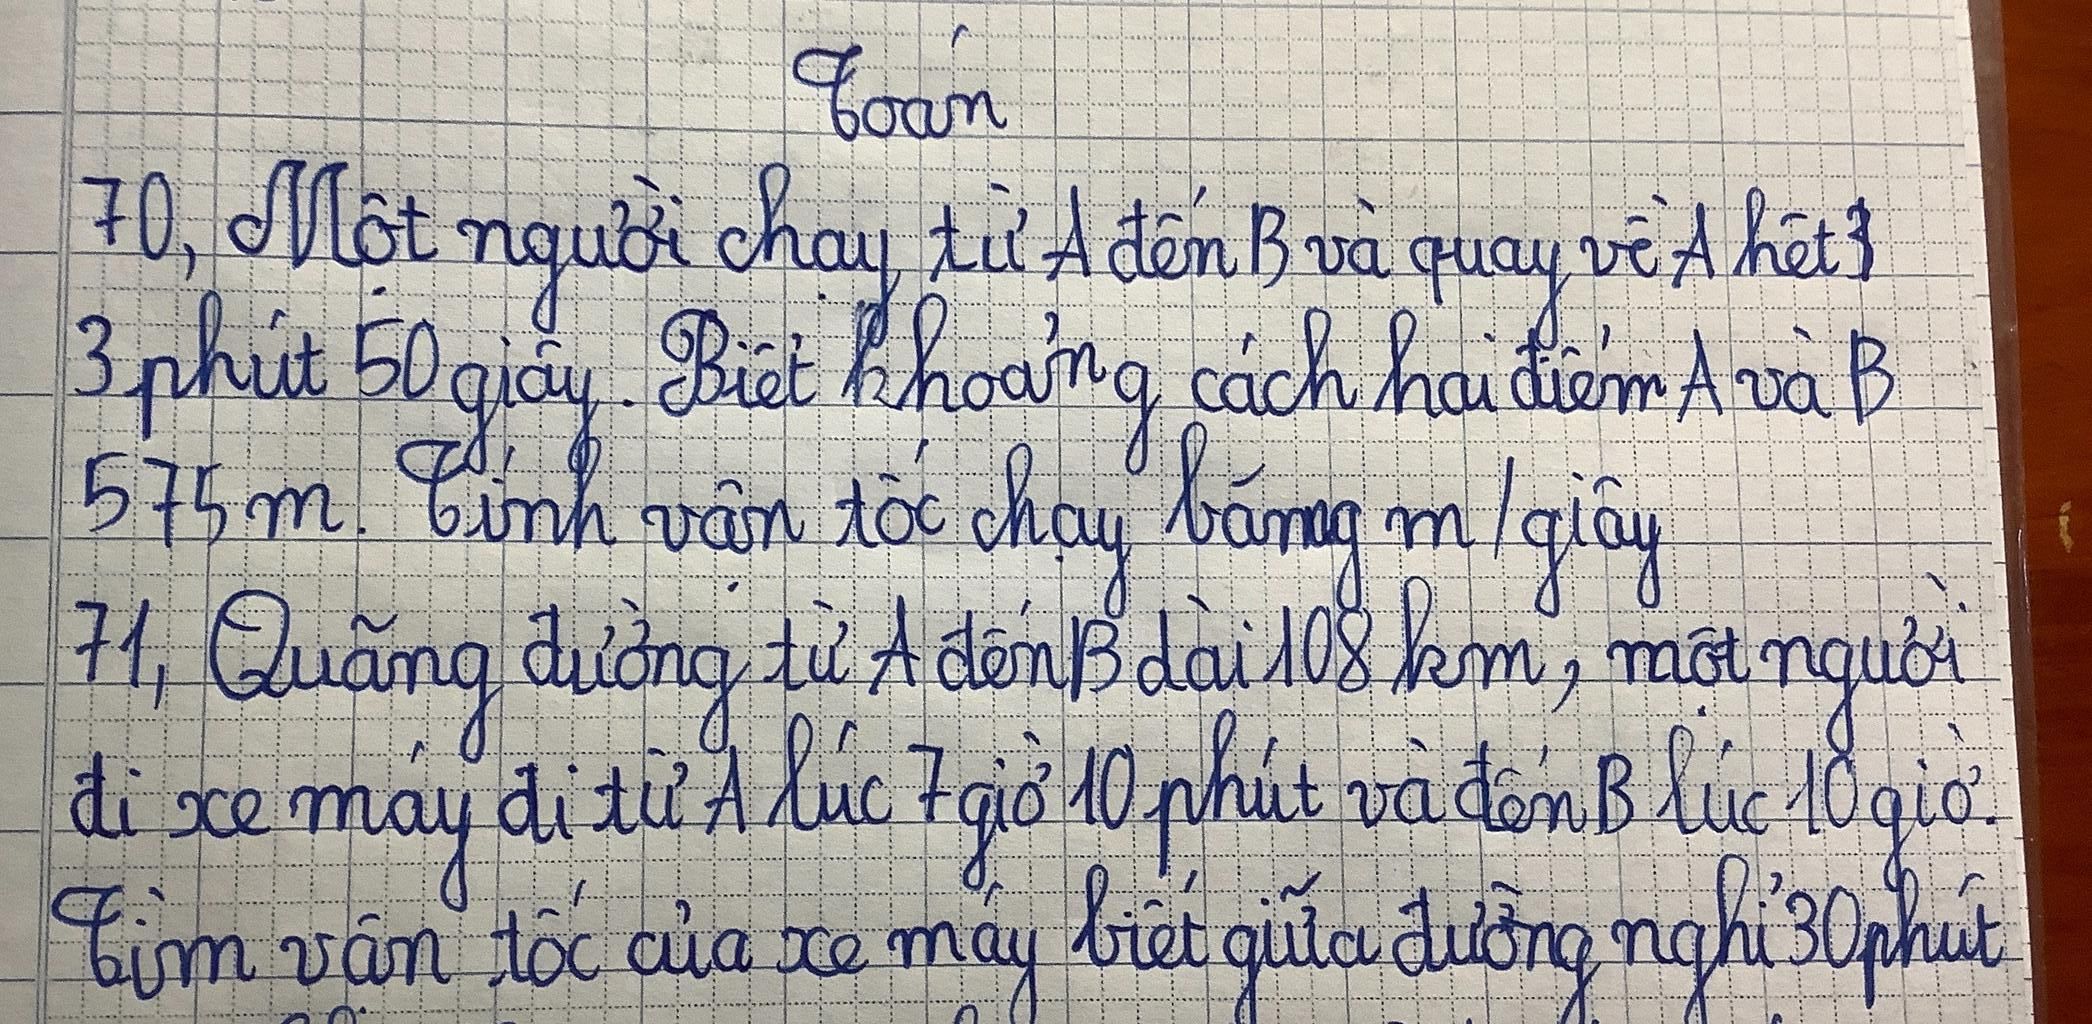 Toán
70, Một người chạy từ A đến B và quay về A hết
3 phút 50 giây. Biết khoảng cách hai điểm A và B
575 m. Tính vận tốc chạy bằng m/giây
71, Quãng đường từ A đến B dài 108 km, một người
đi xe máy đi từ A lúc 7 giờ 10 phút và đến B lúc 10 giờ.
Tìm vận tốc của xe máy biết giữa đường nghỉ 30 phút